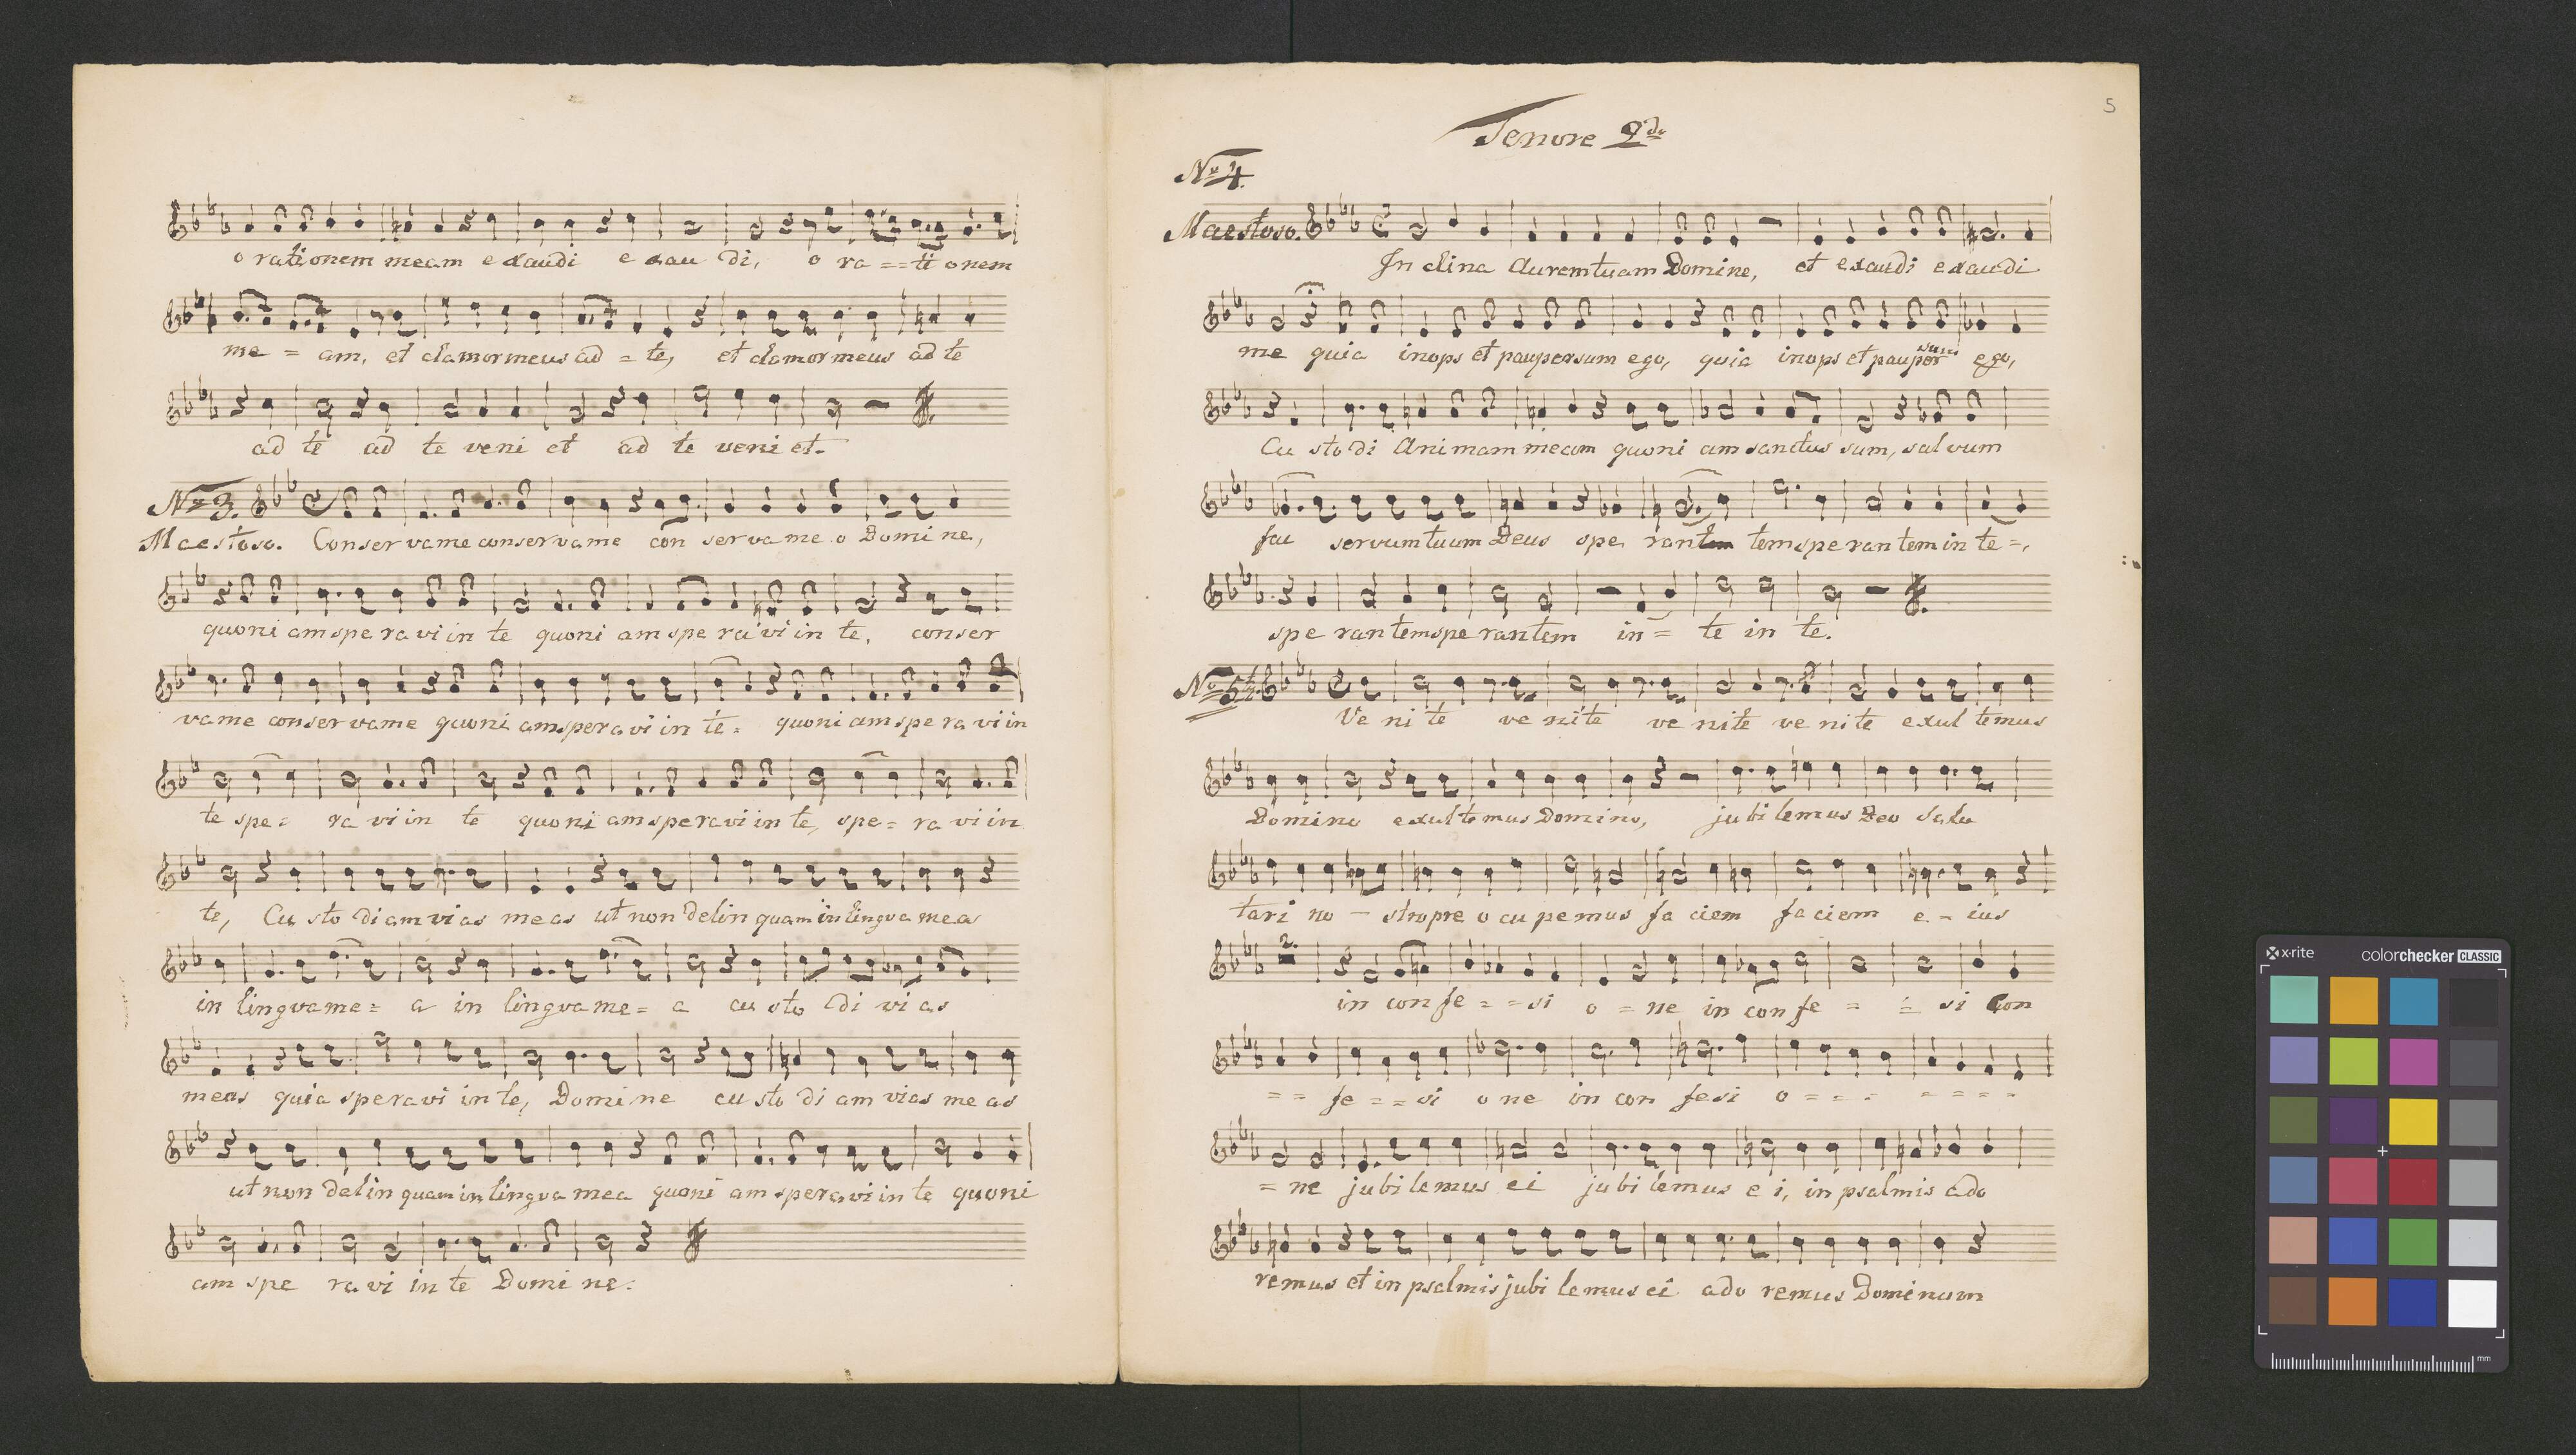 o rationem meam exaudi exau di, o ra == ti onem
me = am, et clamor meus ad = te, et clamor meus ad te
ad te ad te veni et ad te veni et.
No 3.
Maestoso. Conser va me conser va me con ser va me o Domi ne,
quoni am spe ra vi in te quoni am spe ra vi in te, conser
va me conser va me quoni am spera vi in te = quoni am spe ra vi in
te spe = ra vi in te quoni am spera vi in te, spe = ra vi in
te, Cu sto di am vias meas ut non delin quam in lingva mea
in lingva me = a in lingva me = a cu sto di vi as
meas quia spera vi in te, Domi ne cu sto di am vias me as
ut non delin quam in lingva mea quoni am spera vi in te quoni
am spe ra vi in te Domi ne.
5
Tenore 2do
No 4.
Maestoso. In clina Aurem tuam Domine, et exaudi exaudi
me quia inops et pauper sum ego, quia inops et pauper sum ego,
Cu sto di Animam meam quoni am sanctus sum, sal vum
fac servum tuum Deus spe ran tem spe ran tem in te =,
spe ran tem spe ran tem in = te in te.
No 5.
Ve ni te ve nite ve nite ve ni te exul temus
Domino exultemus Domino, jubi lemus Deo salu
tari no - stro pre o cu pemus fa ciem fa ciem e - ius
2.
in con fe = = si o = ne in con fe = = si Con
= = fe = = si o ne in con fesi o = = = = = = =
= ne jubi lemus ei jubi lemus e i, in psalmis ado
remus et in psalmis jubi lemus ei ado remus Dominum
x-rite
colorchecker CLASSIC
mm